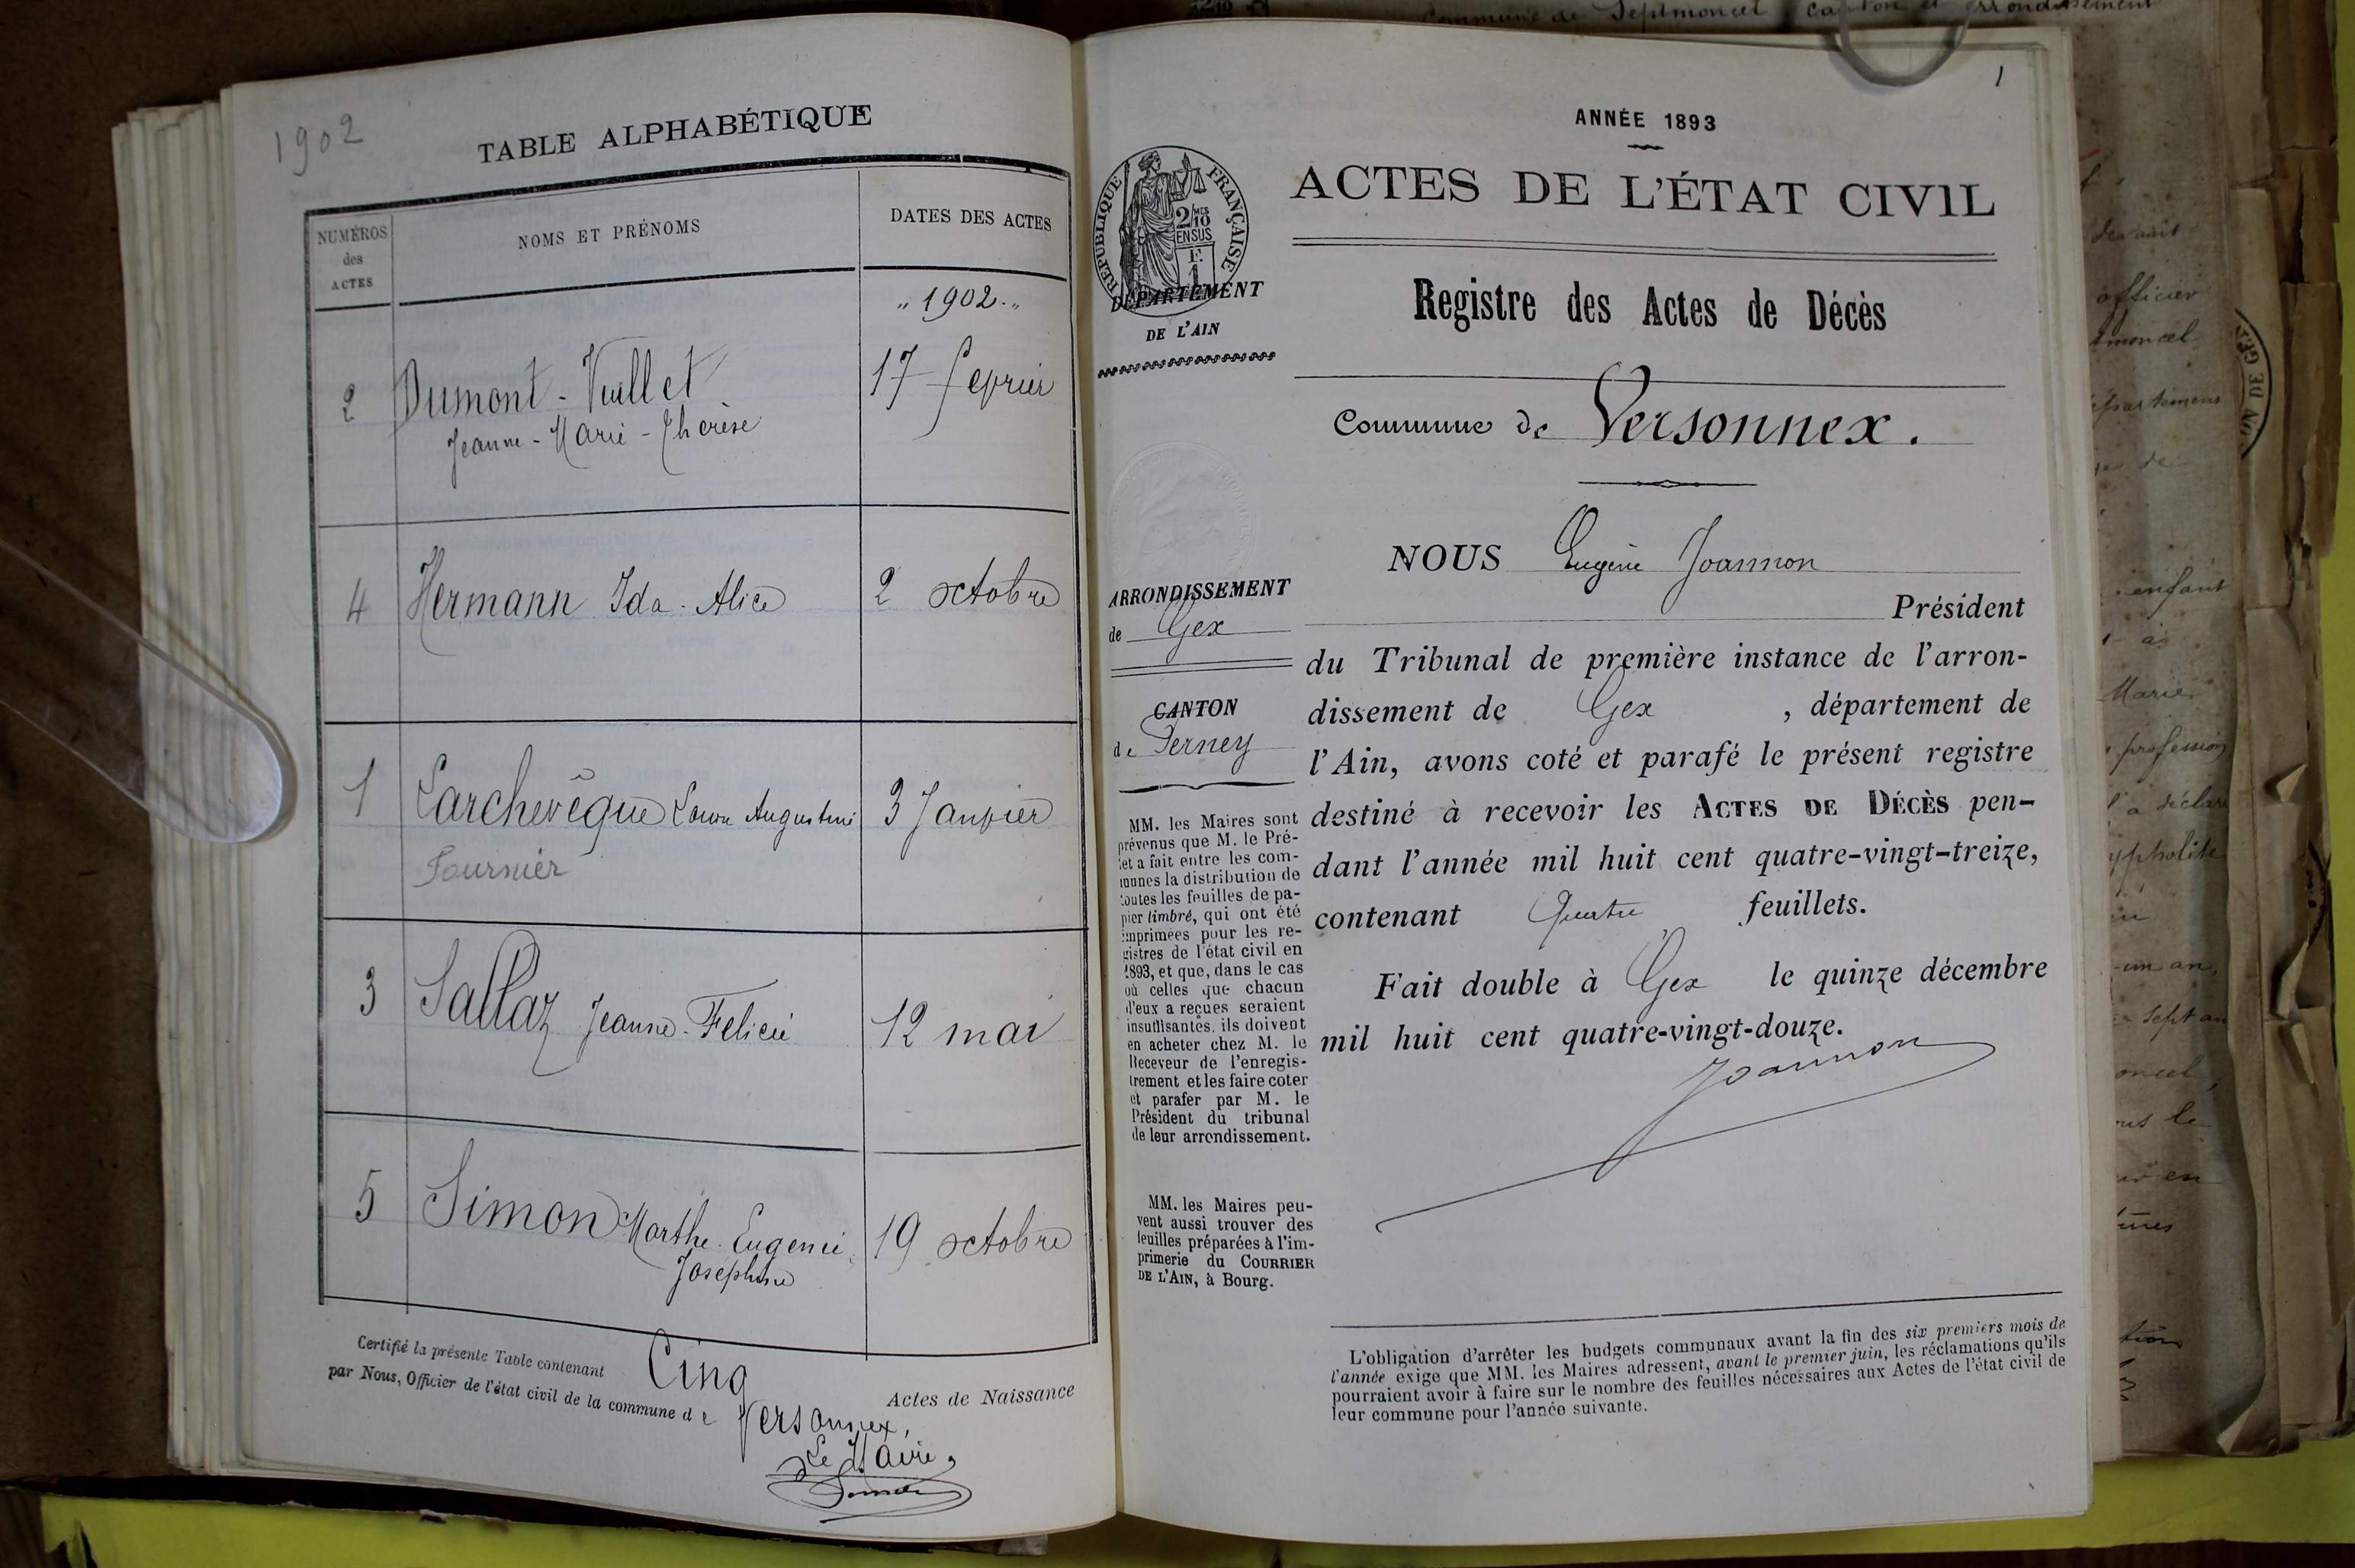 1902
TABLE ALPHABÉTIQUE
NUMÉROS
des
ACTES
NOMS ET PRÉNOMS
DATES DES ACTES
„ 1902 „
2 Dumont - Vuillet 17 février
Jeanne - Marie - Thérèse
4 Hermann Ida - Alice 2 octobre
1 Larchevêque Augustine 3 Janvier
Fournier
3 Sallaz Jeanne - Felicie 12 mai
5 Simon Marthe Eugenie 19 octobre
Josephine
Certifié la présente Table contenant Cinq Actes de Naissance
par Nous, Officier de l'état civil de la commune de Versonnex,
Le Maire,
1
ANNÉE 1893
RÉPUBLIQUE FRANÇAISE
2/10 MES
EN SUS
F.
1
DÉPARTEMENT
DE L'AIN
ACTES DE L'ÉTAT CIVIL
Registre des Actes de Décès
Commune de Versonnex.
ARRONDISSEMENT
de Gex
CANTON
de Ferney
MM. les Maires sont
prévenus que M. le Pré-
fet a fait entre les com-
munes la distribution de
toutes les feuilles de pa-
pier timbré, qui ont été
imprimées pour les re-
gistres de l'état civil en
1893, et que, dans le cas
où celles que chacun
d'eux a reçues seraient
insuffisantes, ils doivent
en acheter chez M. le
Receveur de l'enregis-
trement et les faire coter
et parafer par M. le
Président du tribunal
de leur arrondissement.
MM. les Maires peu-
vent aussi trouver des
feuilles préparées à l'im-
primerie du COURRIER
DE L'AIN, à Bourg.
NOUS Eugène Joannon
Président
du Tribunal de première instance de l'arron-
dissement de Gex , département de
l'Ain, avons coté et parafé le présent registre
destiné à recevoir les ACTES DE DÉCÈS pen-
dant l'année mil huit cent quatre-vingt-treize,
contenant Quatre feuillets.
Fait double à Gex le quinze décembre
mil huit cent quatre-vingt-douze.
Joannon
L'obligation d'arrêter les budgets communaux avant la fin des six premiers mois de
l'année exige que MM. les Maires adressent, avant le premier juin, les réclamations qu'ils
pourraient avoir à faire sur le nombre des feuilles nécessaires aux Actes de l'état civil de
leur commune pour l'année suivante.
Commune de Septmoncel, canton et arrondissement
devant
officier
département
enfant
Marie
profession
a déclaré
un an,
sept an